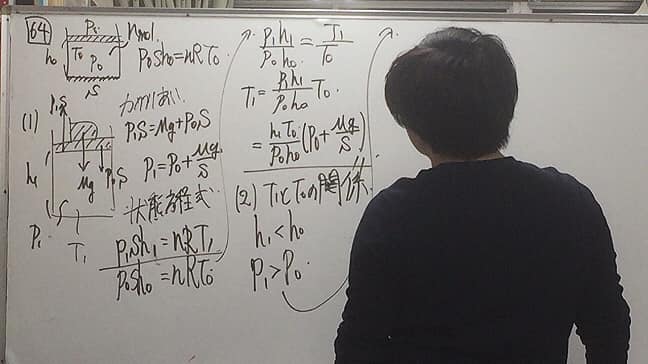 64
P₀
n mol
h₀
T₀
P₀
S
P₀Sh₀=nRT₀.
(1)
P₁S
力のつりあい.
P₁S=Mg+P₀S
h₁
Mg
P₀S
P₁=P₀+Mg/S
P₁
T₁
状態方程式
P₁Sh₁=nRT₁
P₀Sh₀=nRT₀
P₁h₁/P₀h₀=T₁/T₀
T₁=P₁h₁/P₀h₀ T₀.
=h₁T₀/P₀h₀(P₀+Mg/S)
(2) T₁とT₀の関係.
h₁<h₀
P₁>P₀.